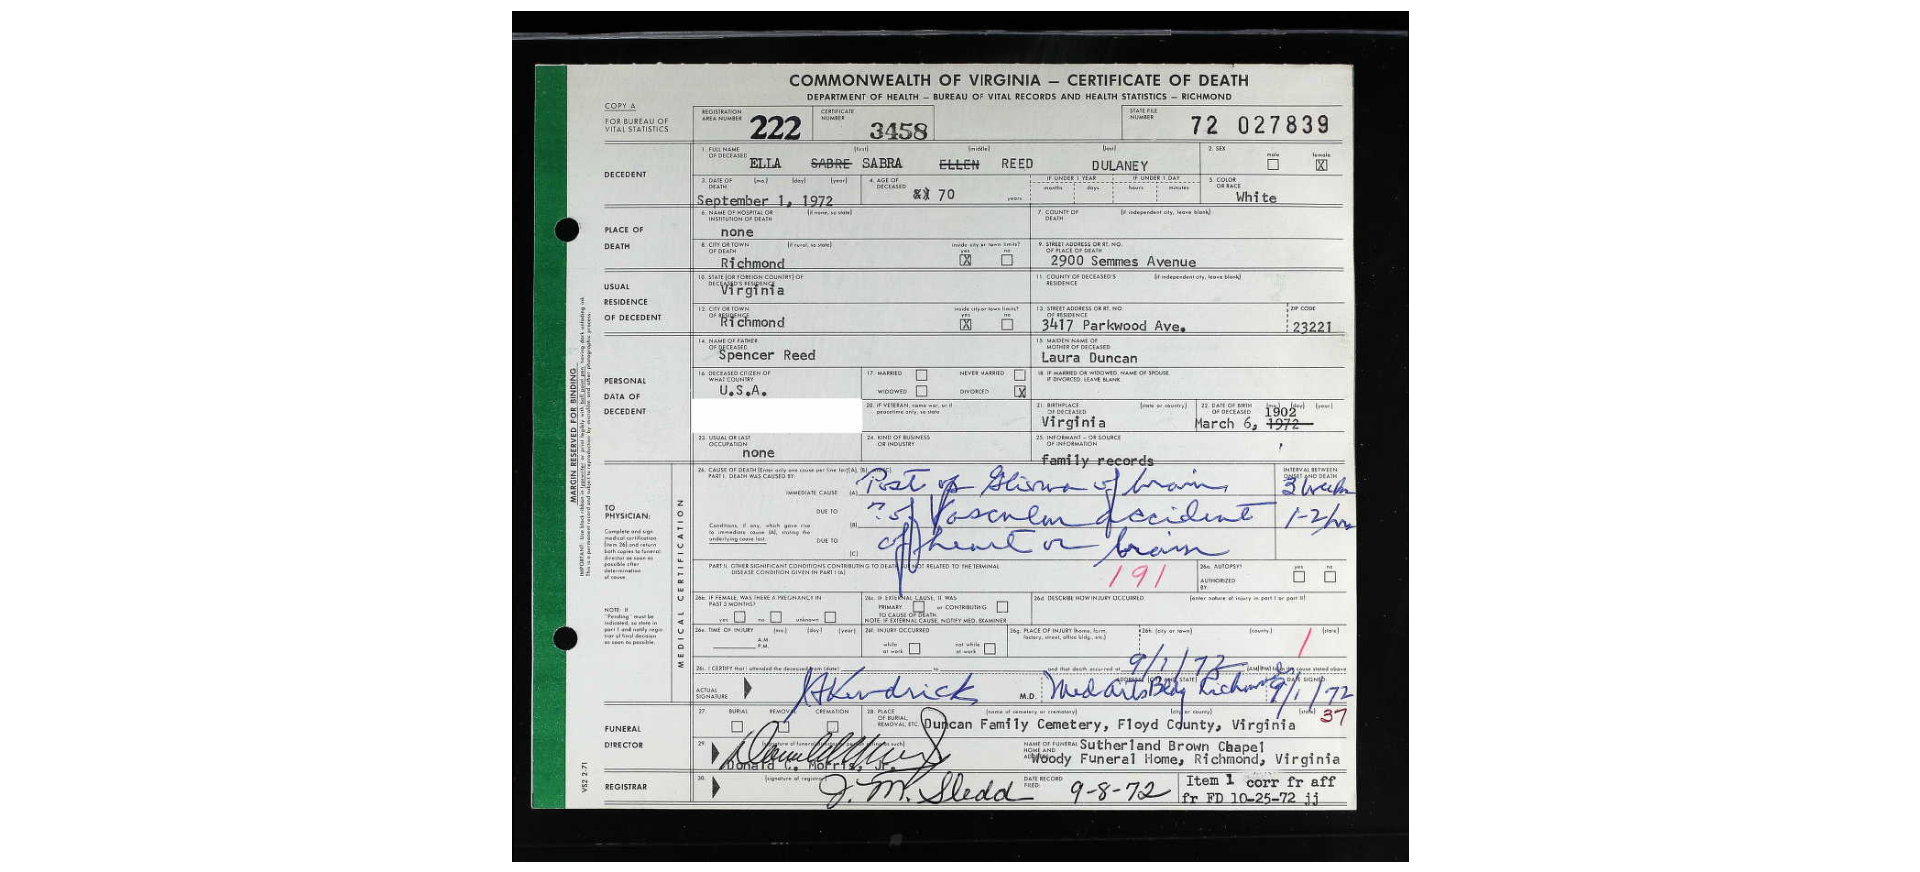 COMMONWEALTH OF VIRGINIA — CERTIFICATE OF DEATH
DEPARTMENT OF HEALTH — BUREAU OF VITAL RECORDS AND HEALTH STATISTICS — RICHMOND
COPY A
FOR BUREAU OF VITAL STATISTICS
REGISTRATION AREA NUMBER 222
CERTIFICATE NUMBER 3458
STATE FILE NUMBER 72 027839
DECEDENT
1. FULL NAME OF DECEASED (first) (middle) (last)
ELLA SABRE SABRA ELLEN REED DULANEY
2. SEX male female X
3. DATE OF DEATH (mo.) (day) (year)
September 1, 1972
4. AGE OF DECEASED 70 years
IF UNDER 1 YEAR months days
IF UNDER 1 DAY hours minutes
5. COLOR OR RACE
White
PLACE OF DEATH
6. NAME OF HOSPITAL OR INSTITUTION OF DEATH (if none, so state)
none
7. COUNTY OF DEATH (if independent city, leave blank)
8. CITY OR TOWN OF DEATH (if rural, so state) inside city or town limits? yes no
Richmond X
9. STREET ADDRESS OR RT. NO. OF PLACE OF DEATH
2900 Semmes Avenue
USUAL RESIDENCE OF DECEDENT
10. STATE (OR FOREIGN COUNTRY) OF DECEASED'S RESIDENCE
Virginia
11. COUNTY OF DECEASED'S RESIDENCE (if independent city, leave blank)
12. CITY OR TOWN OF RESIDENCE inside city or town limits? yes no
Richmond X
13. STREET ADDRESS OR RT. NO. OF RESIDENCE
3417 Parkwood Ave.
ZIP CODE
23221
PERSONAL DATA OF DECEDENT
14. NAME OF FATHER OF DECEASED
Spencer Reed
15. MAIDEN NAME OF MOTHER OF DECEASED
Laura Duncan
16. DECEASED CITIZEN OF WHAT COUNTRY
U.S.A.
17. MARRIED NEVER MARRIED
WIDOWED DIVORCED X
18. IF MARRIED OR WIDOWED, NAME OF SPOUSE IF DIVORCED, LEAVE BLANK
20. IF VETERAN, name war, or if peacetime only, so state
21. BIRTHPLACE OF DECEASED (state or country)
Virginia
22. DATE OF BIRTH OF DECEASED (mo.) (day) (year)
1902
March 6, 1972
23. USUAL OR LAST OCCUPATION
none
24. KIND OF BUSINESS OR INDUSTRY
25. INFORMANT – OR SOURCE OF INFORMATION
family records
MARGIN RESERVED FOR BINDING
TO PHYSICIAN:
Complete and sign medical certification (item 26) and return both copies to funeral director as soon as possible after determination of cause.
NOTE: If "Pending" must be indicated, so state in part I and notify registrar of final decision as soon as possible.
MEDICAL CERTIFICATION
26. CAUSE OF DEATH (Enter only one cause per line for (A), (B), and (C).)
PART I. DEATH WAS CAUSED BY:
INTERVAL BETWEEN ONSET AND DEATH
IMMEDIATE CAUSE (A) Post op Glioma of brain 3 weeks
DUE TO
Conditions, if any, which gave rise to immediate cause (A), stating the underlying cause last.
(B) ? of Vascular accident 1-2/hrs
DUE TO
(C) of heart or brain
PART II. OTHER SIGNIFICANT CONDITIONS CONTRIBUTING TO DEATH BUT NOT RELATED TO THE TERMINAL DISEASE CONDITION GIVEN IN PART I (A)
191
26a. AUTOPSY? yes no
AUTHORIZED BY:
26b. IF FEMALE, WAS THERE A PREGNANCY IN PAST 3 MONTHS?
yes no unknown
26c. IF EXTERNAL CAUSE, IT WAS
PRIMARY or CONTRIBUTING
TO CAUSE OF DEATH
NOTE: IF EXTERNAL CAUSE, NOTIFY MED. EXAMINER
26d. DESCRIBE HOW INJURY OCCURRED (enter nature of injury in part I or part II)
26e. TIME OF INJURY (mo.) (day) (year)
A.M.
P.M.
26f. INJURY OCCURRED
while at work not while at work
26g. PLACE OF INJURY (home, farm, factory, street, office bldg., etc.)
26h. (city or town) (county) (state)
1
26i. I CERTIFY that I attended the deceased from (date) to and that death occurred at 9/1/72 (AM) (PM) from the cause stated above
ACTUAL SIGNATURE
Kendrick M.D.
Med Arts Bldg Richmond 9/1/72
DATE SIGNED
FUNERAL DIRECTOR
27. BURIAL REMOVAL CREMATION
28. PLACE OF BURIAL, REMOVAL, ETC. (name of cemetery or crematory) (city or county) (state) 37
Duncan Family Cemetery, Floyd County, Virginia
29.
Donald C. Morris, Jr.
NAME OF FUNERAL HOME AND ADDRESS
Sutherland Brown Chapel
Woody Funeral Home, Richmond, Virginia
REGISTRAR
30. (signature of registrar)
J. M. Sledd
DATE RECORD FILED: 9-8-72
Item 1 corr fr aff
fr FD 10-25-72 jj
VS2 2-71